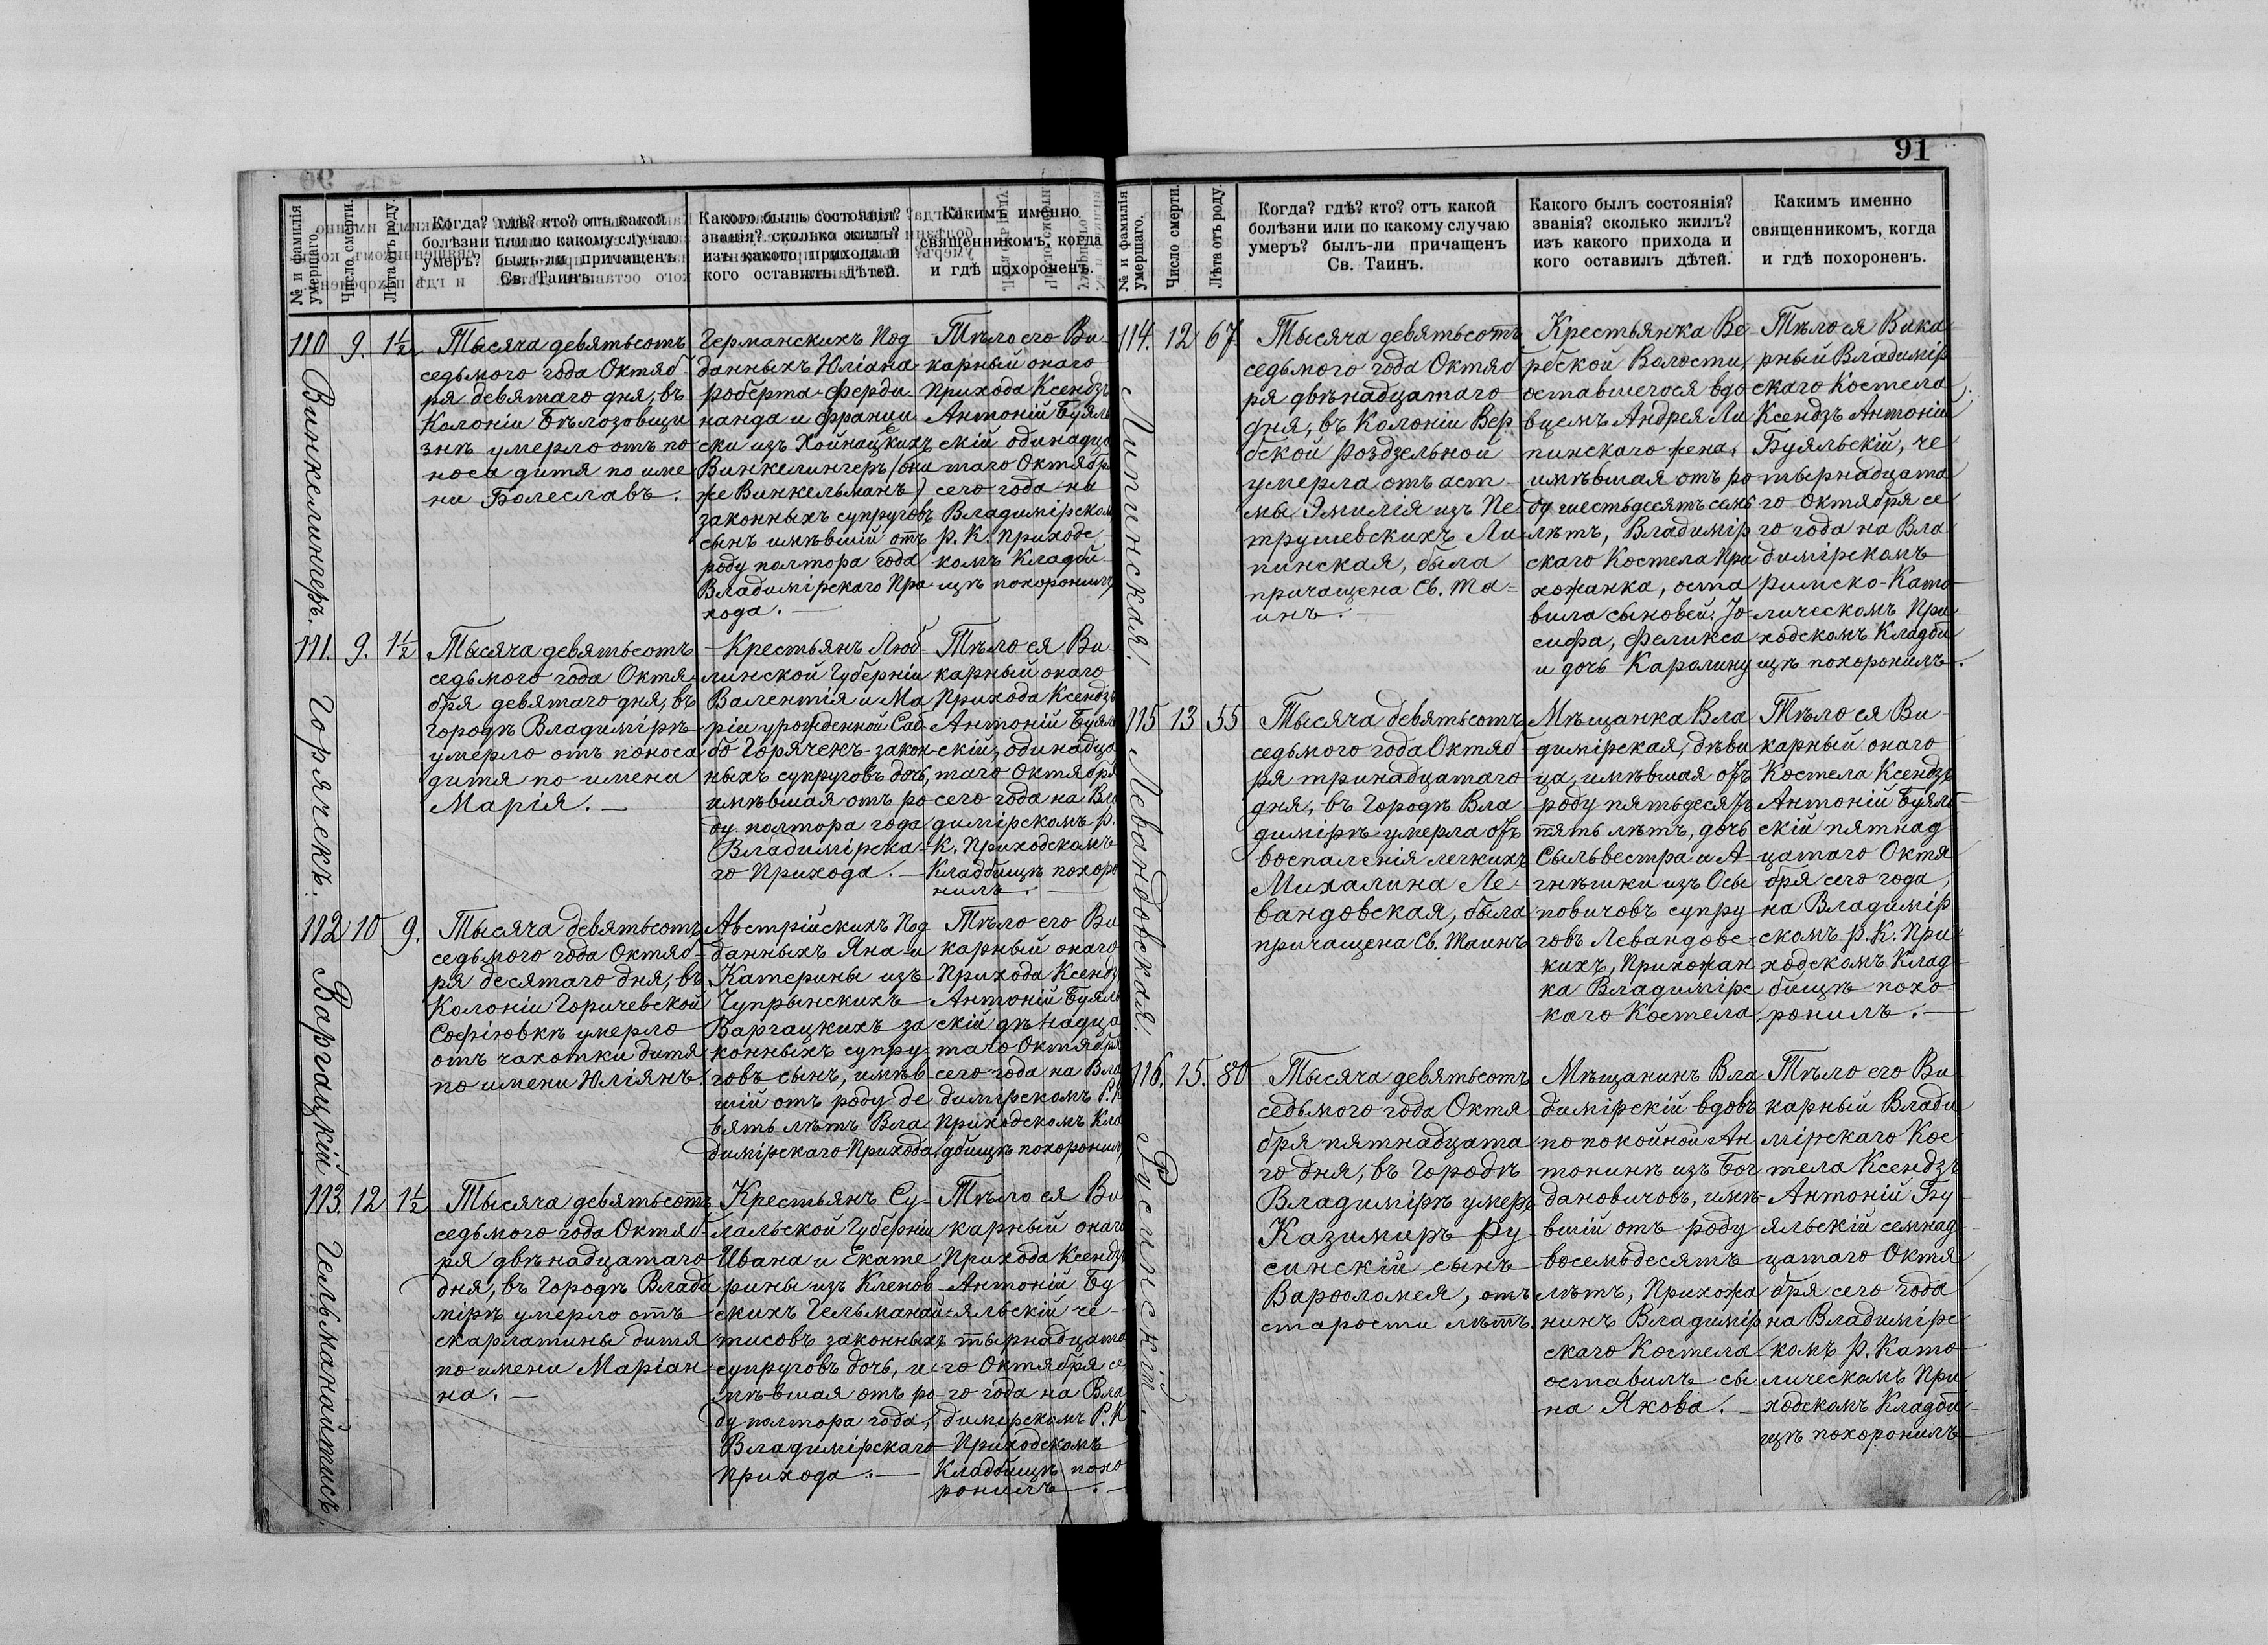 91
№ и фамилія умершаго.
Число смерти.
Лѣта отъ роду.
Когда? гдѣ? кто? отъ какой
болѣзни или по какому случаю
умеръ? былъ-ли причащенъ
Св. Таинъ.
Какого былъ состоянія?
званія? сколько жилъ?
изъ какого прихода и
кого оставилъ дѣтей.
Какимъ именно
священникомъ, когда
и гдѣ похороненъ.
110
Винкелингеръ.
9.
1½
Тысяча девятьсотъ
седьмого года Октяб
ря девятаго дня, въ
Колоніи Бѣлозовщи
знѣ умерло отъ по
носа дитя по име
ни Болеславъ.
Германскихъ Под
данныхъ Юліана
Роберта-Ферди
нанда и Франци
ски изъ Хойнацкихъ
Винкелингеръ (они
же Винкельманъ)
законныхъ супруговъ
сынъ имѣвшій отъ
роду полтора года
Владимірскаго При
хода. —
Тѣло его Ви
карный онаго
Прихода Ксендзъ
Антоній Буяль
скій одинадца
таго Октября
сего года на
Владимірском
Р. К. Приходс
комъ Кладби
щѣ похоронилъ
111.
Горячекъ.
9.
1½
Тысяча девятьсотъ
седьмого года Октя
бря девятаго дня, въ
городѣ Владимірѣ
умерло отъ поноса
дитя по имени
Марія. —
Крестьянъ Люб-
линской Губерніи
Валентія и Ма
ріи урожденной Саб
бо Горячекъ закон-
ныхъ супруговъ дочь,
имѣвшая отъ ро
ду полтора года
Владимірска-
го Прихода. —
Тѣло ея Ви
карный онаго
Прихода Ксендзъ
Антоній Буяль
скій, одинадца
таго Октября
сего года на Вла
димірскомъ Р.
К. Приходскомъ
Кладбищѣ похоро
нилъ. —
112
Варгацкій
10
9.
Тысяча девятьсотъ
седьмого года Октяб-
ря десятаго дня, въ
Колоніи Горичевской
Софіювкѣ умерло
отъ чахотки дитя
по имени Юліянъ.
Австрійскихъ Под
данныхъ Яна и
Катерины изъ
Чупрынскихъ
Варгацкихъ за
конныхъ супру-
говъ сынъ, имѣв-
шій отъ роду де
вять лѣтъ Вла
димірскаго Прихода
Тѣло его Ви
карный онаго
Прихода Ксендзъ
Антоній Буяль
скій двѣнадца
таго Октября
сего года на Вла
димірскомъ Р.К
Приходскомъ Кла
дбищѣ похоронилъ
113.
Гельманайтисъ.
12
1½
Тысяча девятьсотъ
седьмого года Октяб-
ря двѣнадцатаго
дня, въ городѣ Влади
мірѣ умерло отъ
скарлатины дитя
по имени Маріан
на. —
Крестьянъ Су-
вальской Губерніи
Ивана и Екате
рины изъ Кленов-
скихъ Гельманай-
тисовъ законныхъ
супруговъ дочь, и-
мѣвшая отъ ро-
ду полтора года,
Владимірскаго
Прихода. —
Тѣло ея Ви
карный онаго
Прихода Ксендзъ
Антоній Бу
яльскій че
тырнадцата
го Октября се
го года на Вла
димірскомъ Р.К
Приходскомъ
Кладбищѣ похо
ронилъ. —
№ и фамилія умершаго.
Число смерти.
Лѣта отъ роду.
Когда? гдѣ? кто? отъ какой
болѣзни или по какому случаю
умеръ? былъ-ли причащенъ
Св. Таинъ.
Какого былъ состоянія?
званія? сколько жилъ?
изъ какого прихода и
кого оставилъ дѣтей.
Какимъ именно
священникомъ, когда
и гдѣ похороненъ.
114.
Липинская.
12
67
Тысяча девятьсотъ
седьмого года Октяб
ря двѣнадцатаго
дня, въ Колоніи Вер
бской Роздзельной
умерла отъ аст-
мы Эмилія изъ Пе
трушевскихъ Ли
пинская, была
причащена Св. Та-
инъ. —
Крестьянка Ве
рбской Волости,
оставшегося вдо
вцемъ Андрея Ли
пинскаго жена,
имѣвшая отъ ро
ду шестьдесятъ семь
лѣтъ, Владимір
скаго Костела При
хожанка, оста
вила сыновей: Іо
сифа, Феликса
и дочь Каролину
Тѣло ея Вика
рный Владимір
скаго Костела
Ксендзъ Антоній
Буяльскій, че
тырнадцата
го Октября се
го года на Вла
димірскомъ
Римско-Като
лическомъ При
ходскомъ Кладби
щѣ похоронилъ.
115
Левандовская.
13
55
Тысяча девятьсотъ
седьмого года Октяб
ря тринадцатаго
дня, въ Городѣ Вла
димірѣ умерла отъ
воспаленія легкихъ
Михалина Ле-
вандовская, была
причащена Св. Таинъ
Мѣщанка Вла
димірская, дѣви
ца, имѣвшая отъ
роду пятьдесятъ
пять лѣтъ, дочь
Сыльвестра и А-
гнѣшки изъ Осы
повичовъ супру
говъ Левандовс-
кихъ, Прихожан
ка Владимірс
каго Костела
Тѣло ея Ви-
карный онаго
Костела Ксендзъ
Антоній Буяль-
скій пятнад-
цатаго Октя
бря сего года,
на Владимір
скомъ Р. К. При
ходскомъ Клад-
бищѣ похо-
ронилъ. —
116.
Русинскій.
15.
80
Тысяча девятьсотъ
седьмого года Октя
бря пятнадцата
го дня, въ Городѣ
Владимірѣ умеръ
Казимиръ Ру
синскій сынъ
Варѳоломея, отъ
старости лѣтъ.
Мѣщанинъ Вла
димірскій вдовъ
по покойной Ан
тонинѣ изъ Бог
дановичовъ, имѣ-
вшій отъ роду
восемьдесятъ
лѣтъ, Прихожа
нинъ Владимір
скаго Костела
оставилъ сы
на Якова. —
Тѣло его Ви
карный Влади
мірскаго Кос-
тела Ксендзъ
Антоній Бу-
яльскій семнад
цатаго Октя
бря сего года
на Владимірс
комъ Р. Като
лическомъ При
ходскомъ Кладби
щѣ похоронилъ